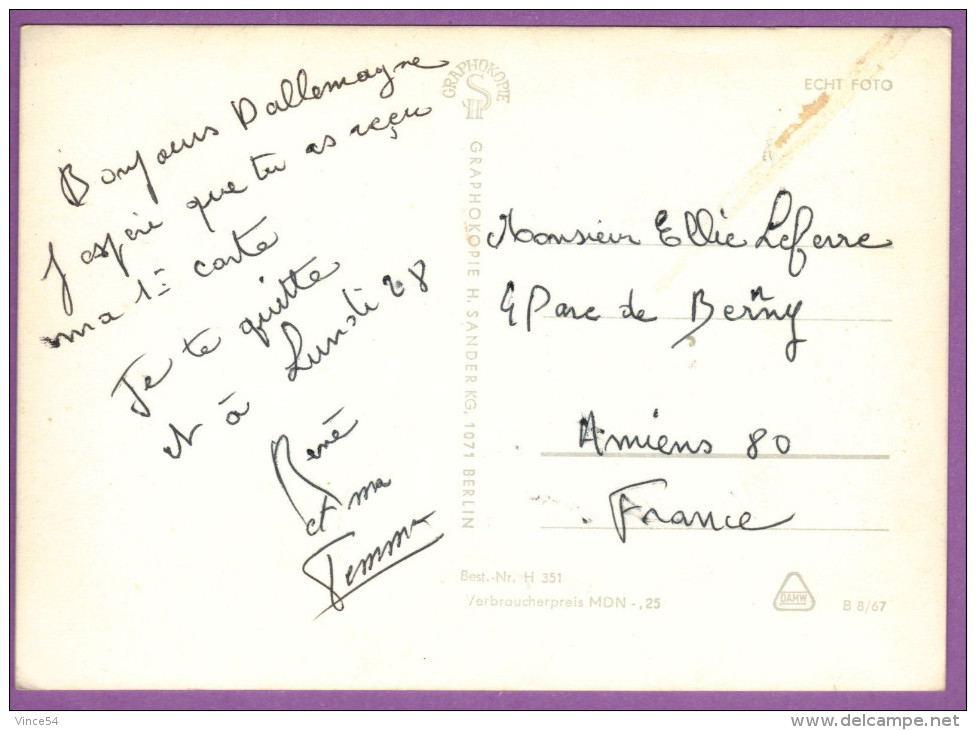 Bonjours Dallemagne
J'espére que tu as reçu
ma 1= carte
Je te quitte
et à Lundi 28
René
et ma
Femme
GRAPHOKOPIE
GRAPHOKOPIE H. SANDER KG, 1071 BERLIN
ECHT FOTO
Monsieur Ellie Leferre
4 Parc de Berny
Amiens 80
France
Best.-Nr. H 351
Verbraucherpreis MDN -,25
DAMW
B 8/67
Vince54
www.delcampe.net